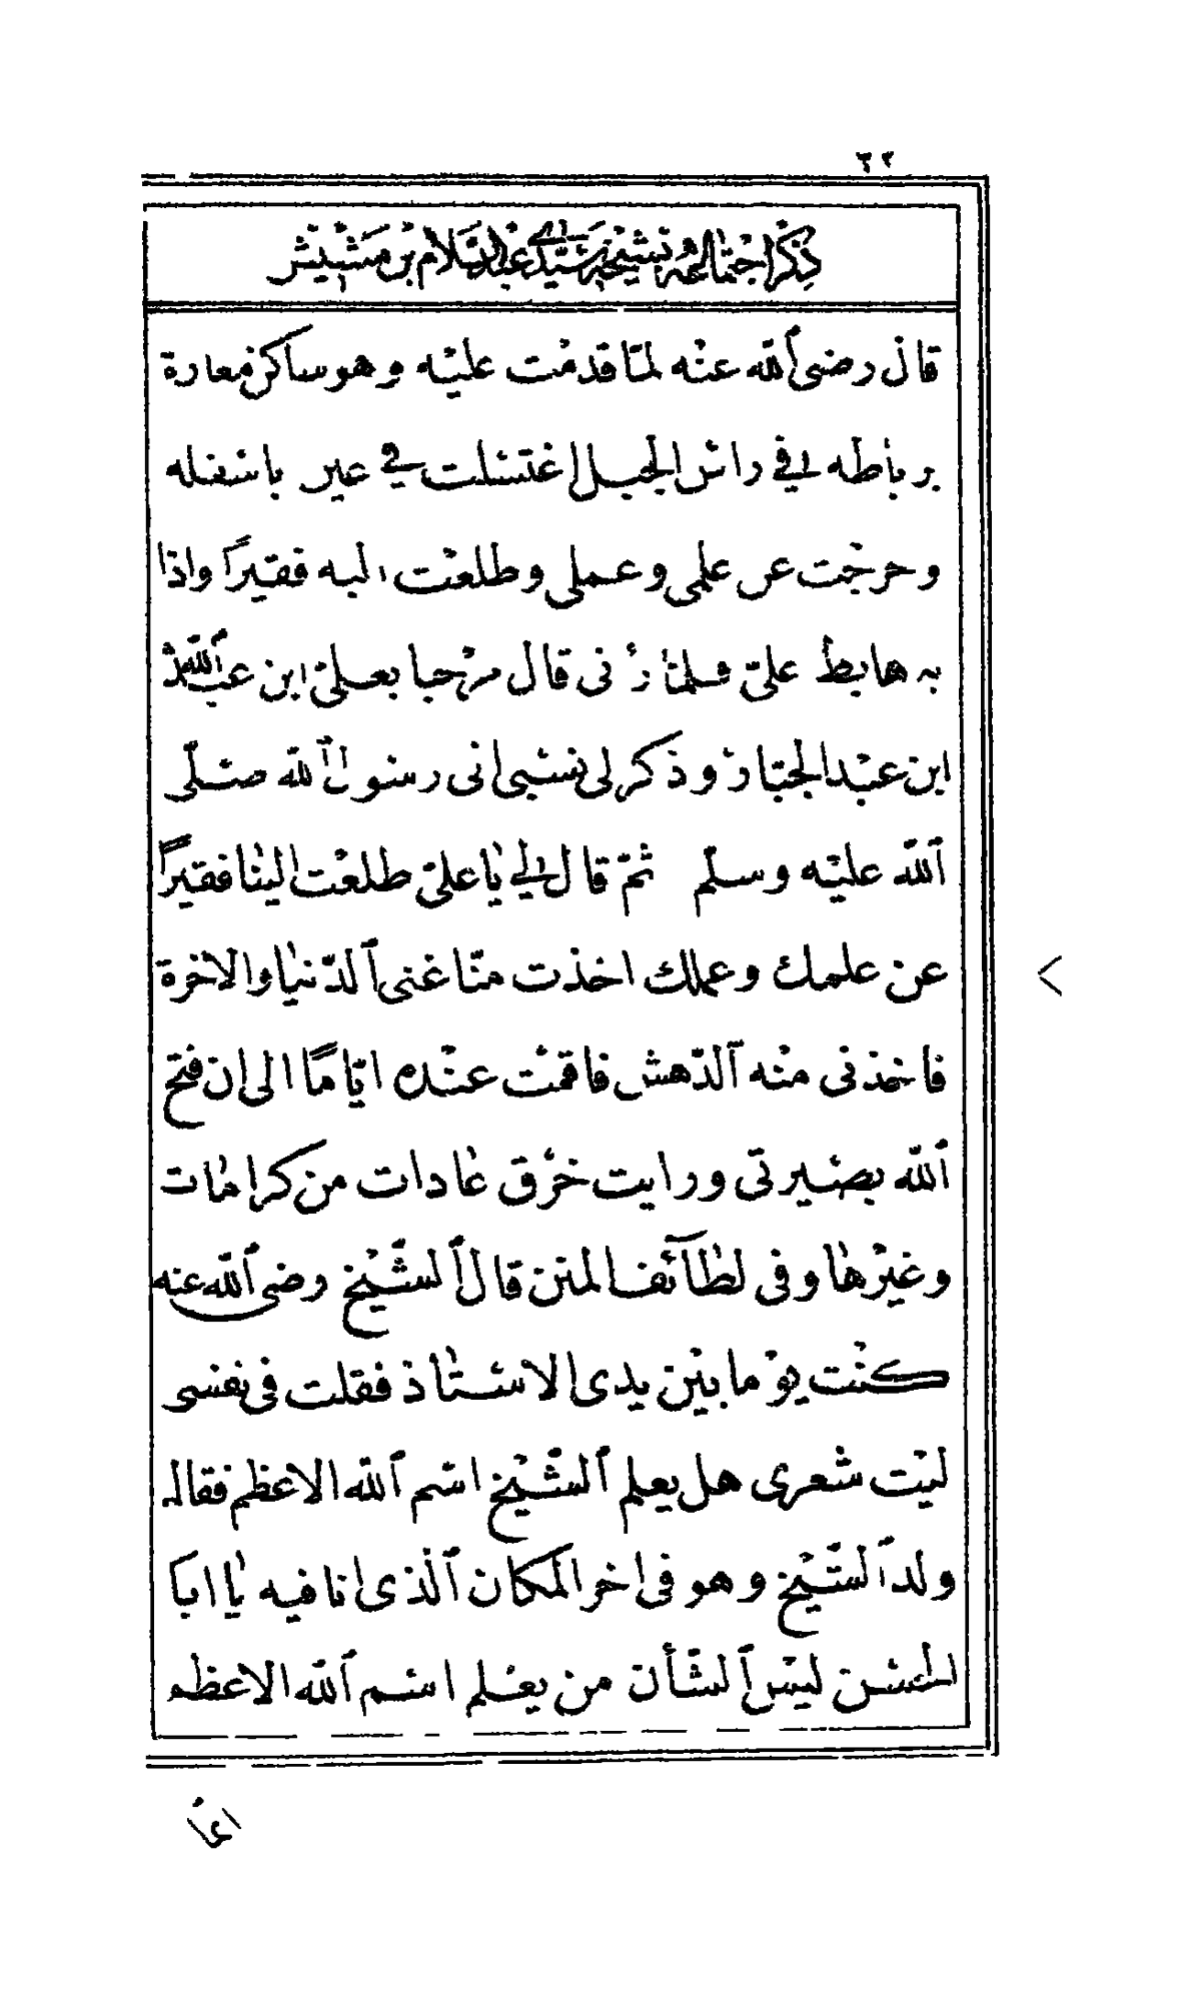 ٢٢
ذكر اجتماعه بشيخه سيدى عبد السلام بن مشيش
قال رضى الله عنه لمّا قدمْت عليْه وهو ساكن مغارة
برباطه في راس الجبل اغتسلت في عين باسفله
وخرجْت عن علمى وعملى وطلعْت اليه فقيرًا واذا
به هابط علىّ فلمّا رآنى قال مرْحبا بعلىّ ابن عبد الله
ابن عبْد الجبّار وذكر لى نسبى الى رسول الله صلّى
الله عليْه وسلّم ثمّ قال لي يا علىّ طلعْت اليْنا فقيرًا
عن علمك وعملك اخذت منّا غنى الدّنيا والاخرة
فاخذنى منْه الدّهش فاقمْت عنْده ايّامًا الى ان فتح
الله بصيرتى ورايت خرْق عادات من كرامات
وغيْرها وفى لطآئف المنن قال الشّيْخ رضى الله عنه
كنْت يوْما بيْن يدى الاسْتاذ فقلت فى نفسى
ليْت شعرى هل يعلم الشّيْخ اسْم الله الاعظم فقال
ولد الشّيْخ وهو فى اخر المكان الّذى انا فيه يا ابا
الحسن ليْس الشّأن من يعْلم اسم الله الاعظم
انّما